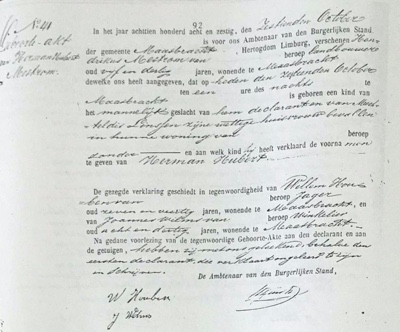 92
No 41
Geboorte-akt
van Herman Hubert
Mestrom.
In het jaar achtien honderd acht en zestig, den Zestienden October
is voor ons Ambtenaar van den Burgerlijken Stand
der gemeente Maasbracht, Hertogdom Limburg, verschenen Hen-
drikus Mestrom van beroep landbouwer
oud vijf en dertig jaren, wonende te Maasbracht
dewelke ons heeft aangegeven, dat op heden den Zestienden October
ten een ure des nachts
te Maasbracht is geboren een kind van
het mannelijk geslacht van hem declarant en van Mech-
tildis Linssen zijne wettige huisvrouw bevallen
in hunne woning van beroep
zonder en aan welk kind hij heeft verklaard de voorna men
te geven van Herman Hubert.
De gezegde verklaring geschiedt in tegenwoordigheid van Willem Hou-
ben van beroep Jager
oud zeven en veertig jaren, wonende te Maasbracht, en
van Joannes Wilms van beroep Winkelier
oud acht en dertig jaren, wonende te Maasbracht.
Na gedane voorlezing van de tegenwoordige Geboorte-Akte aan den declarant en aan
de getuigen, hebben zij met ons geteekend, behalve den
eersten declarant, die verklaart ongeleerd te zijn
in schrijven.
De Ambtenaar van den Burgerlijken Stand,
W Houben
J Wilms